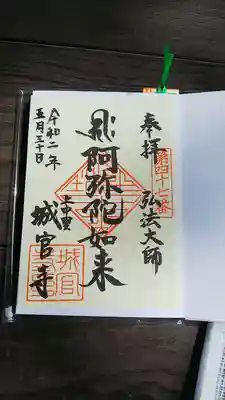 奉拝
第四十七番
弘法大師
阿弥陀如来
上中里
城官寺
令和二年
五月三十日
城官寺